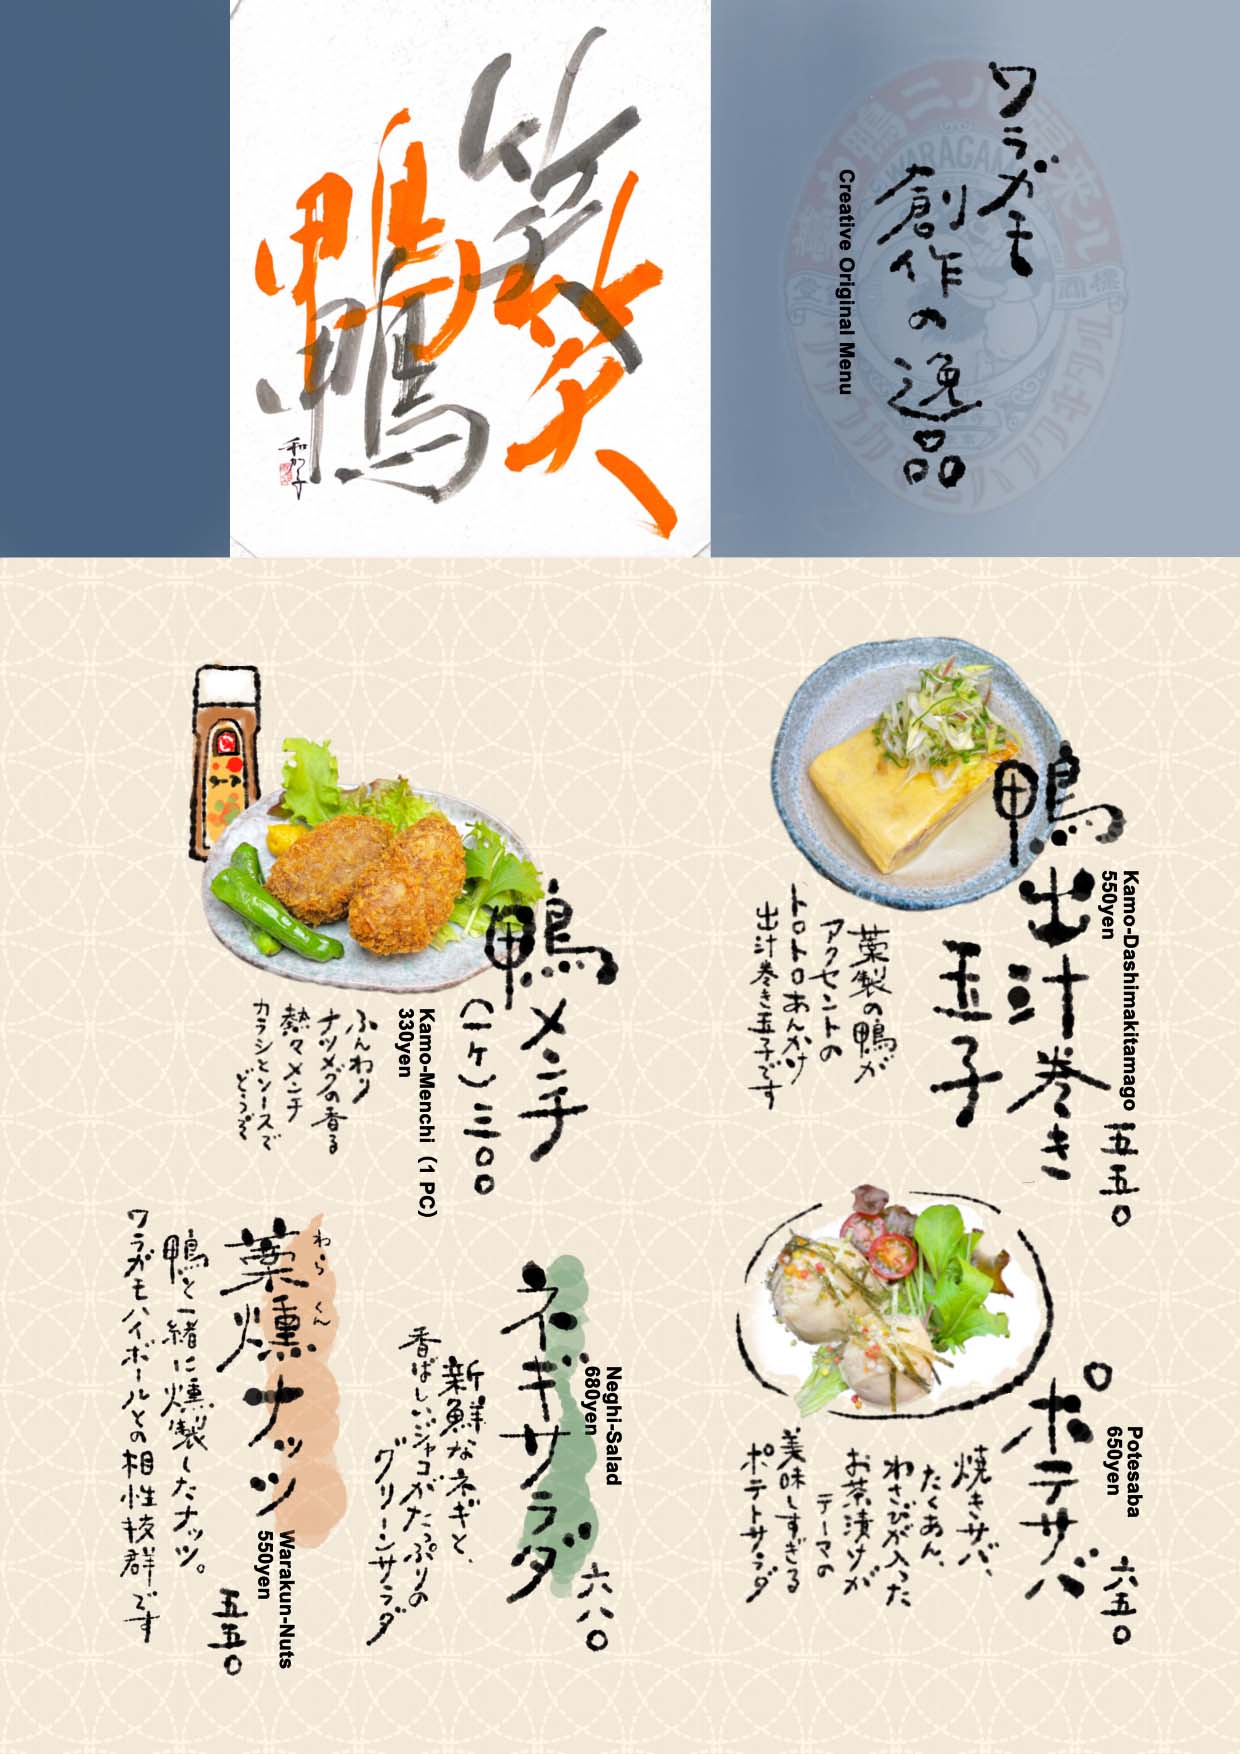 ワラガモ
創作の逸品
Creative Original Menu
WARAGAMO
笑鴨
笑鴨
和かず
鴨出汁巻き
玉子
五五〇
Kamo-Dashimakitamago
550yen
藁製の鴨が
アクセントの
トロトロあんかけ
出汁巻き玉子です
鴨メンチ
(一ケ)三〇〇
Kamo-Menchi (1 PC)
330yen
ふんわり
ナツメグの香る
熱々メンチ
カラシとソースで
どうぞ
ポテサバ
六五〇
Potesaba
650yen
焼きサバ、
たくあん、
わさびが入った
お茶漬けが
テーマの
美味しすぎる
ポテトサラダ
ネギサラダ
六八〇
Neghi-Salad
680yen
新鮮なネギと、
香ばしいジャコがたっぷりの
グリーンサラダ
わらくん
藁燻ナッツ
五五〇
Warakun-Nuts
550yen
鴨と一緒に燻製したナッツ。
ワラガモハイボールとの相性抜群です